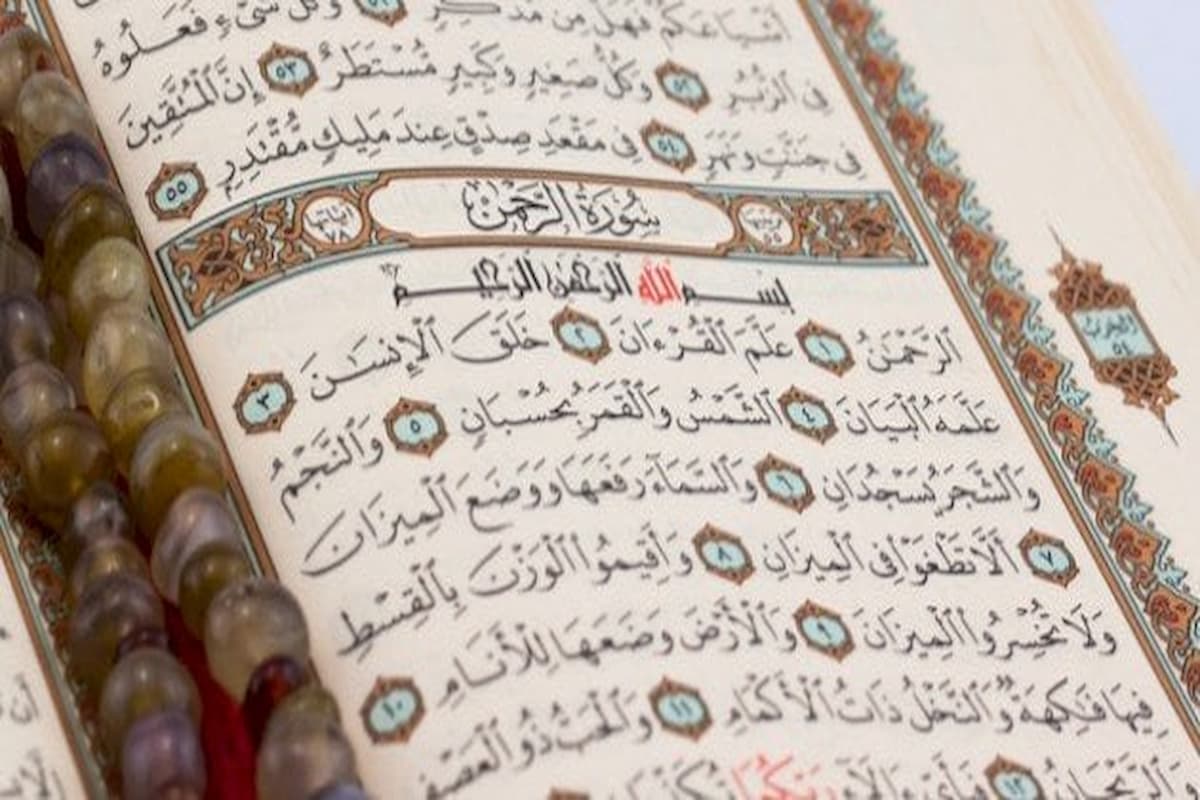 أَشْيَاعَكُمْ فَهَلْ مِن مُّدَّكِرٍ ٥١ وَكُلُّ شَىْءٍ فَعَلُوهُ
فِى ٱلزُّبُرِ ٥٢ وَكُلُّ صَغِيرٍ وَكَبِيرٍ مُّسْتَطَرٌ ٥٣ إِنَّ ٱلْمُتَّقِينَ
فِى جَنَّٰتٍ وَنَهَرٍ ٥٤ فِى مَقْعَدِ صِدْقٍ عِندَ مَلِيكٍ مُّقْتَدِرٍۭ ٥٥
ترتيبها ٥٥ سُورَةُ الرَّحْمٰن اياتها ٧٨
بسم الله الرحمن الرحيم
ٱلرَّحْمَٰنُ ١ عَلَّمَ ٱلْقُرْءَانَ ٢ خَلَقَ ٱلْإِنسَٰنَ ٣
عَلَّمَهُ ٱلْبَيَانَ ٤ ٱلشَّمْسُ وَٱلْقَمَرُ بِحُسْبَانٍ ٥ وَٱلنَّجْمُ
وَٱلشَّجَرُ يَسْجُدَانِ ٦ وَٱلسَّمَآءَ رَفَعَهَا وَوَضَعَ ٱلْمِيزَانَ
٧ أَلَّا تَطْغَوْا۟ فِى ٱلْمِيزَانِ ٨ وَأَقِيمُوا۟ ٱلْوَزْنَ بِٱلْقِسْطِ
وَلَا تُخْسِرُوا۟ ٱلْمِيزَانَ ٩ وَٱلْأَرْضَ وَضَعَهَا لِلْأَنَامِ ١٠
فِيهَا فَٰكِهَةٌ وَٱلنَّخْلُ ذَاتُ ٱلْأَكْمَامِ ١١ وَٱلْحَبُّ ذُو ٱلْعَصْفِ
وَٱلرَّيْحَانُ ١٢ فَبِأَىِّ ءَالَآءِ رَبِّكُمَا تُكَذِّبَانِ
الحزب
٥٤